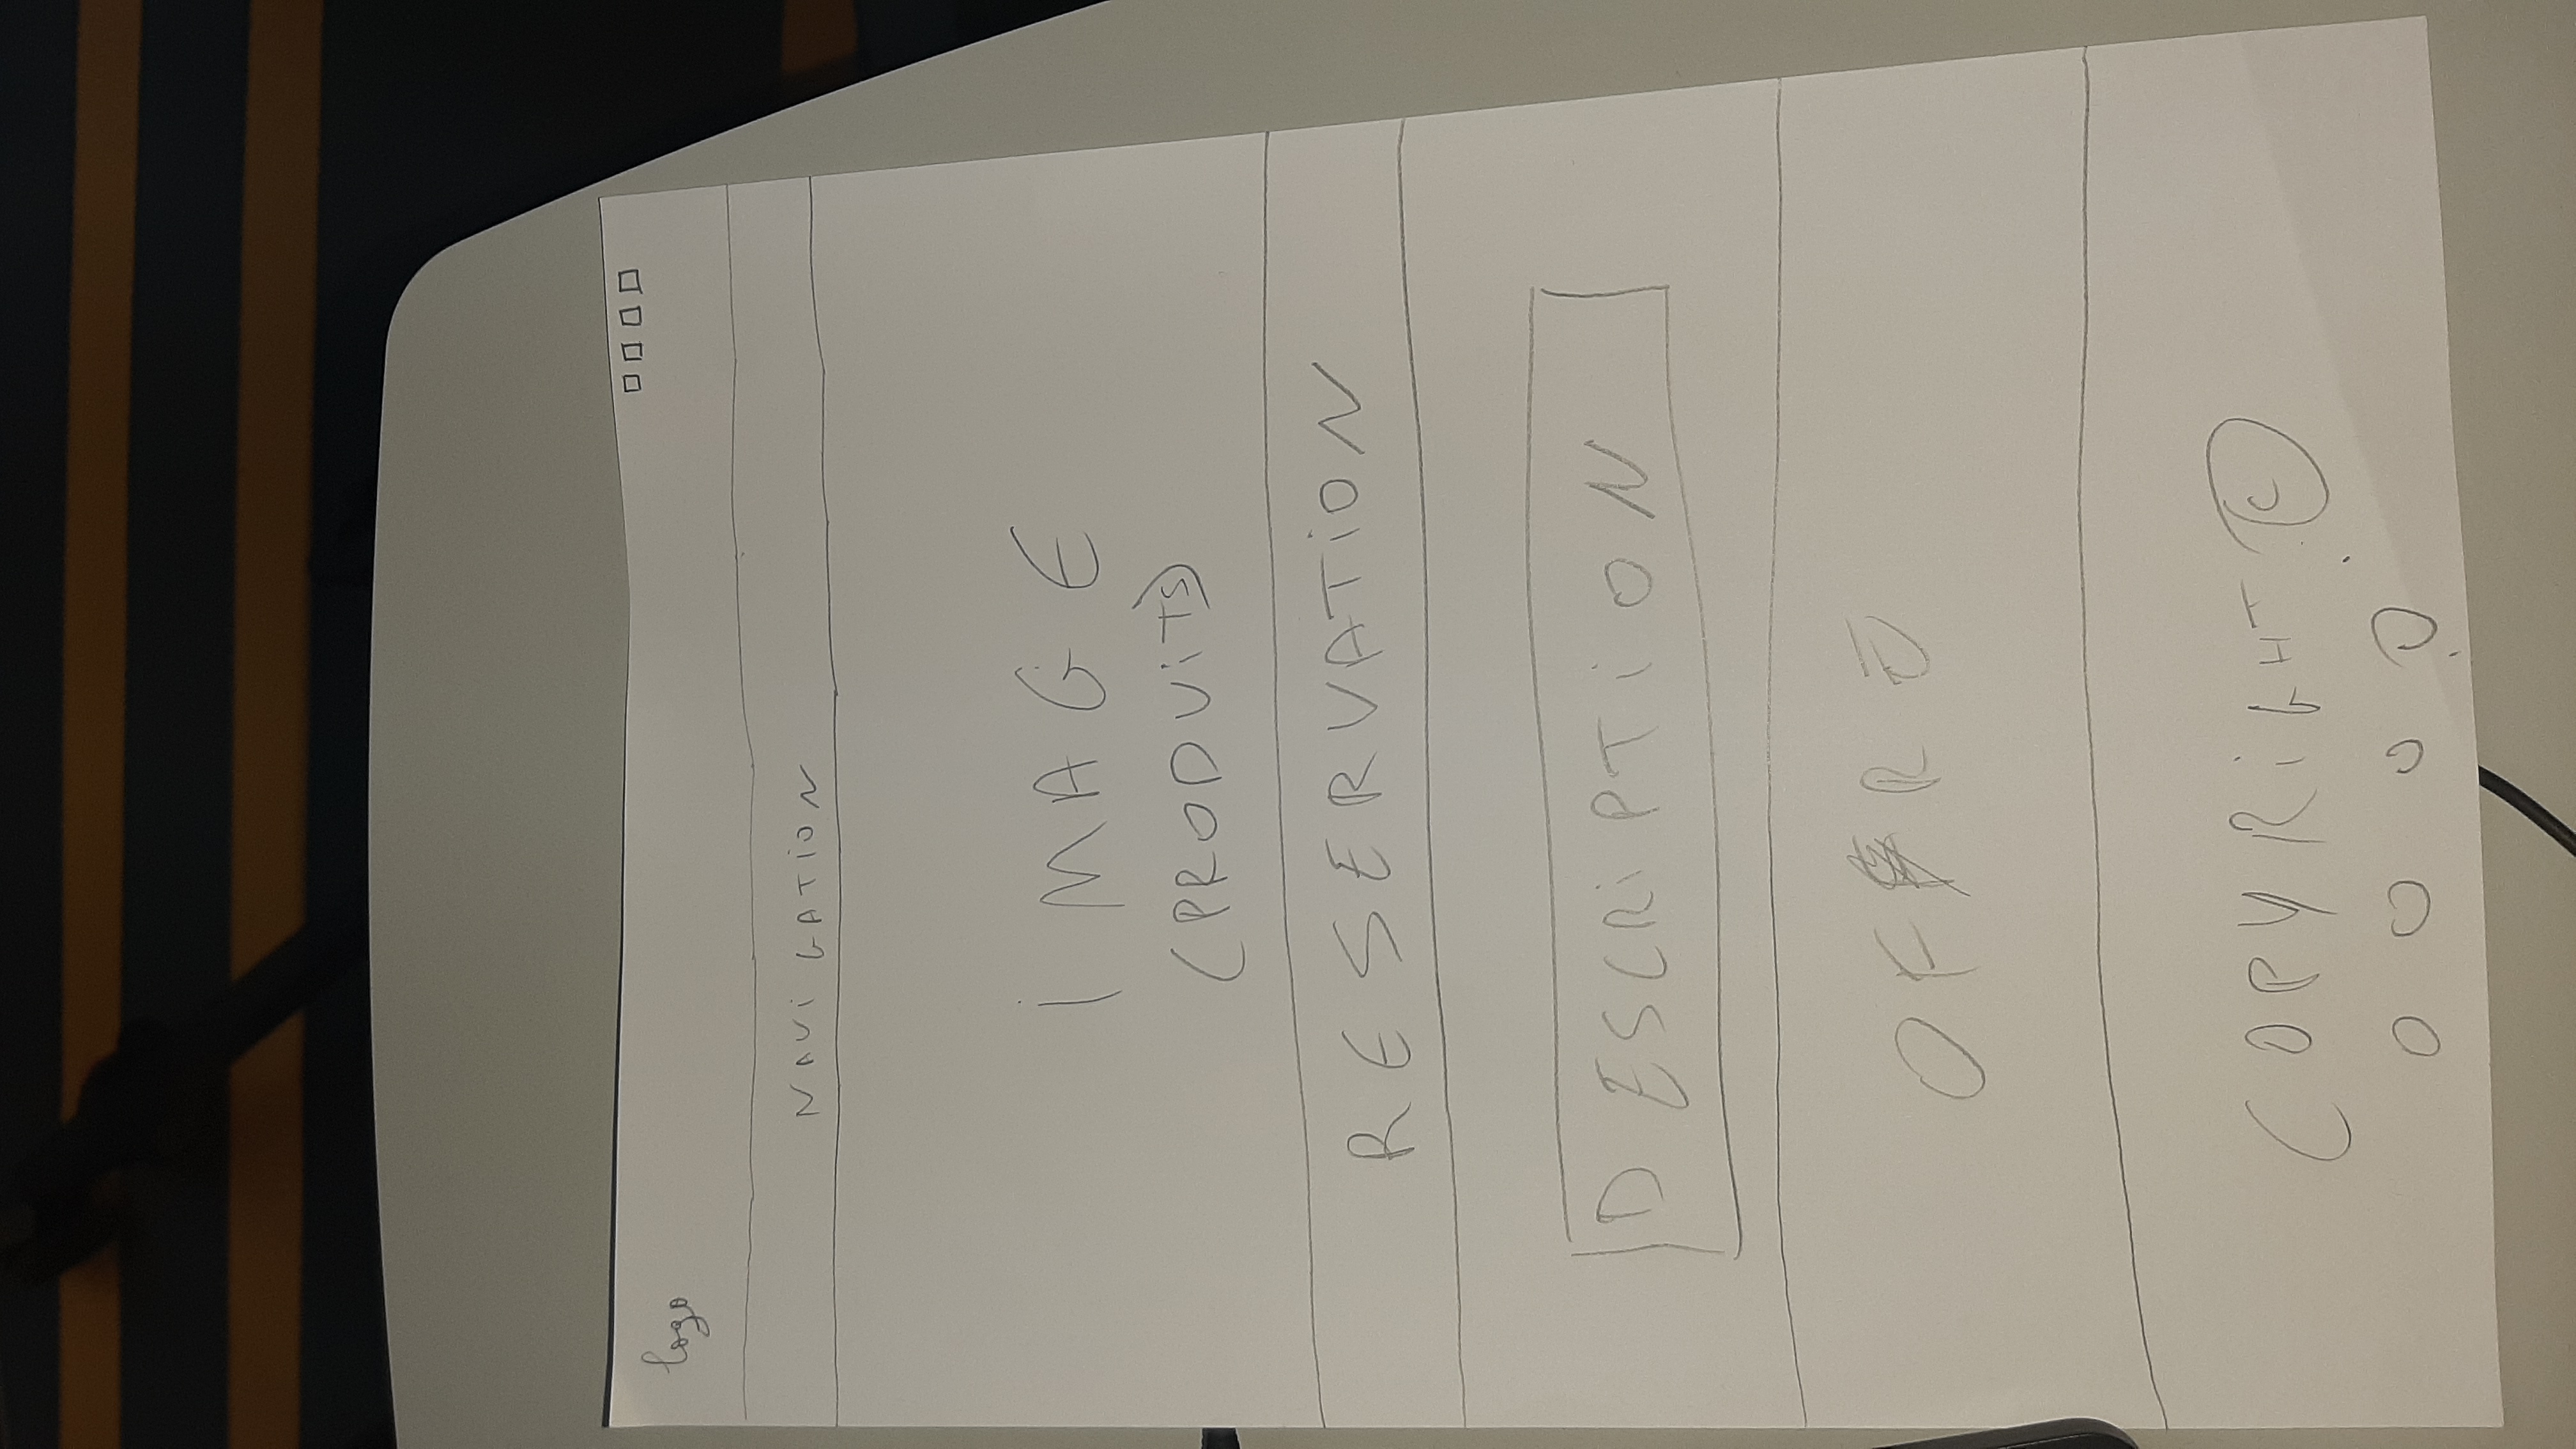 logo
NAViGATiON
iMAGE
(PRODUiTS)
RESERVATiON
DESCRiPTiON
OFFRE
COPYRiGHT ©